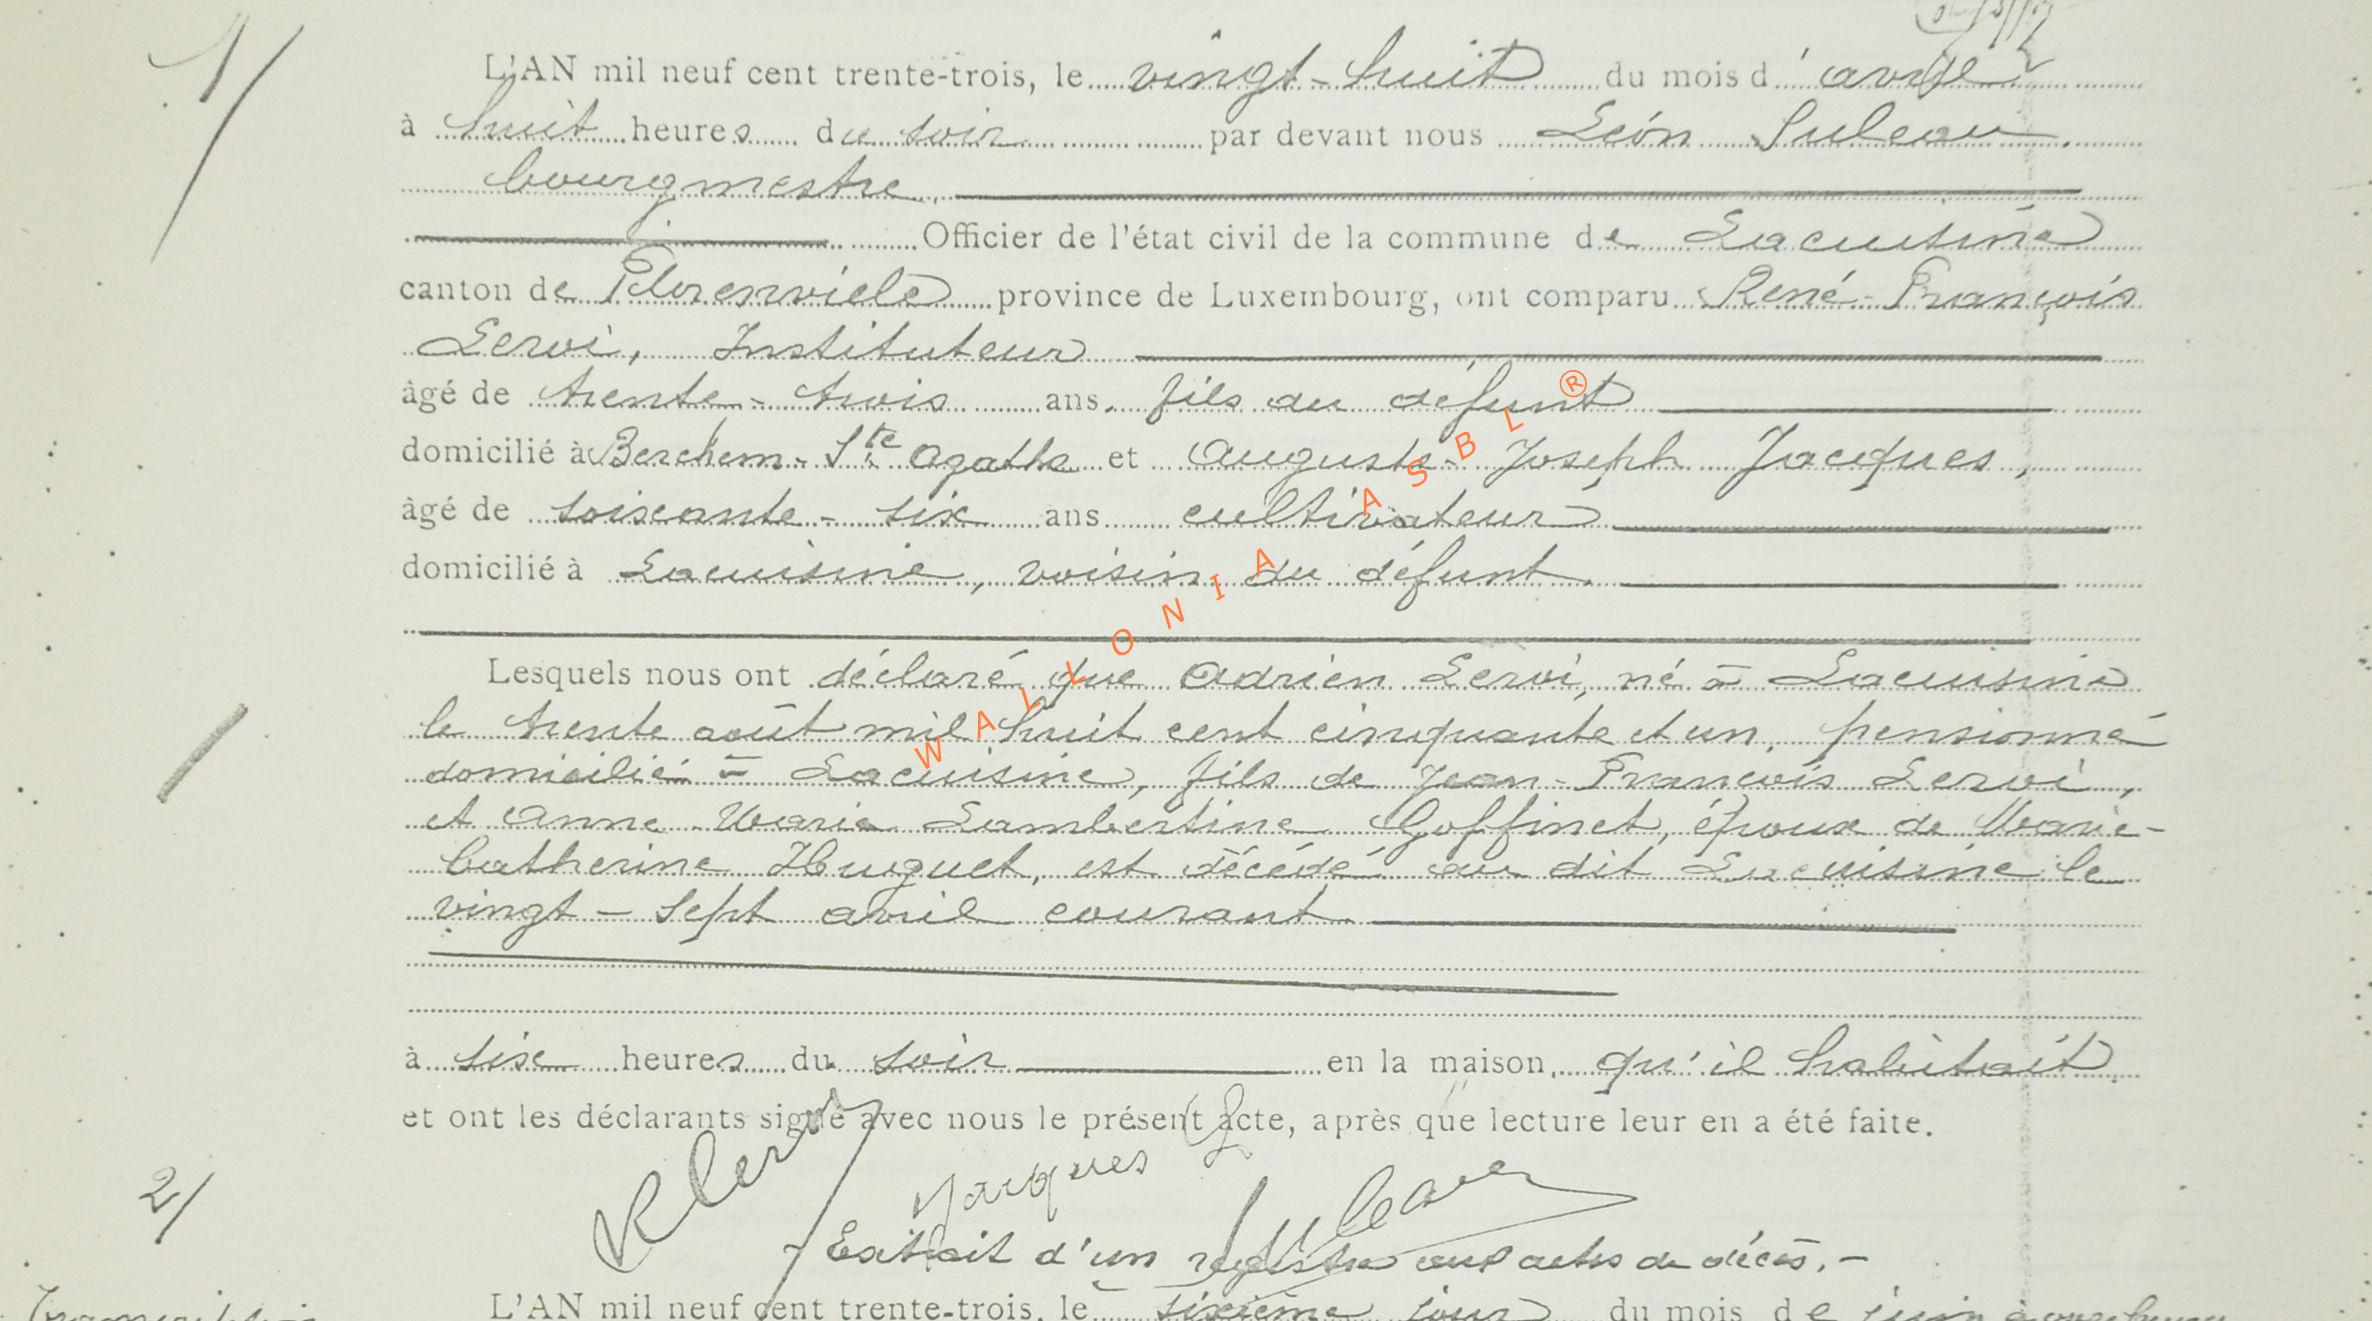 1/
L'AN mil neuf cent trente-trois, le vingt-huit du mois d'avril
à huit heures du soir par devant nous Léon Suleau
bourgmestre
Officier de l'état civil de la commune de Lacuisine
canton de Florenville province de Luxembourg, ont comparu René-François
Leroi, Instituteur
âgé de trente-trois ans, fils du défunt
domicilié à Berchem-Ste Agathe et Auguste-Joseph Jacques,
âgé de soixante-six ans cultivateur
domicilié à Lacuisine, voisin du défunt
Lesquels nous ont déclaré que Adrien Leroi, né à Lacuisine
le trente août mil huit cent cinquante et un, pensionné
domicilié à Lacuisine, fils de Jean-François Leroi,
et Anne Marie Lambertine Goffinet, époux de Marie-
Catherine Huguet, est décédé au dit Lacuisine le
vingt-sept avril courant
à six heures du soir en la maison, qu'il habitait
et ont les déclarants signé avec nous le présent acte, après que lecture leur en a été faite.
R Leroi
Jacques
Suleau
2/
Extrait d'un registre aux actes de décès.-
L'AN mil neuf cent trente-trois, le sixième jour du mois de juin à
WALLONIA ASBL ®